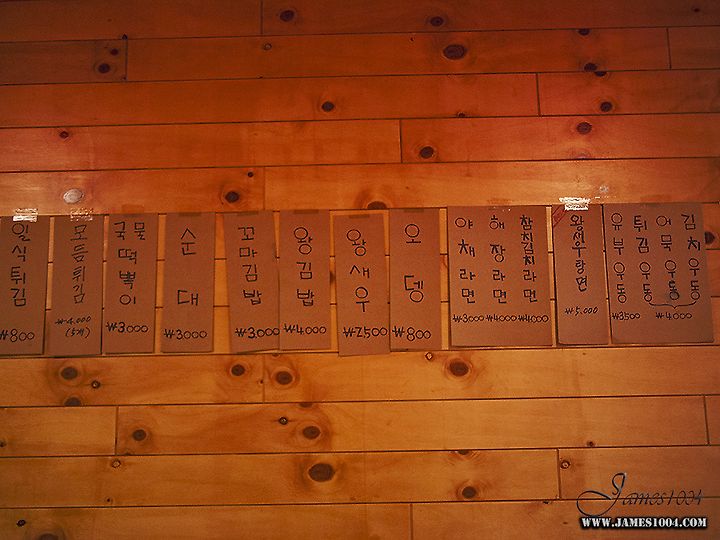 일식튀김
₩800
모듬튀김
₩4.000
(5개)
국물떡뽁이
₩3000
순대
₩3000
꼬마김밥
₩3.000
왕김밥
₩4.000
왕새우
₩2500
오뎅
₩800
야채라면
₩3000
해장라면
₩4000
참치김치라면
₩4000
왕새우탕면
₩5.000
유부우동
₩3500
튀김우동
어묵우동
김치우동
₩4000
James1004
WWW.JAMES1004.COM